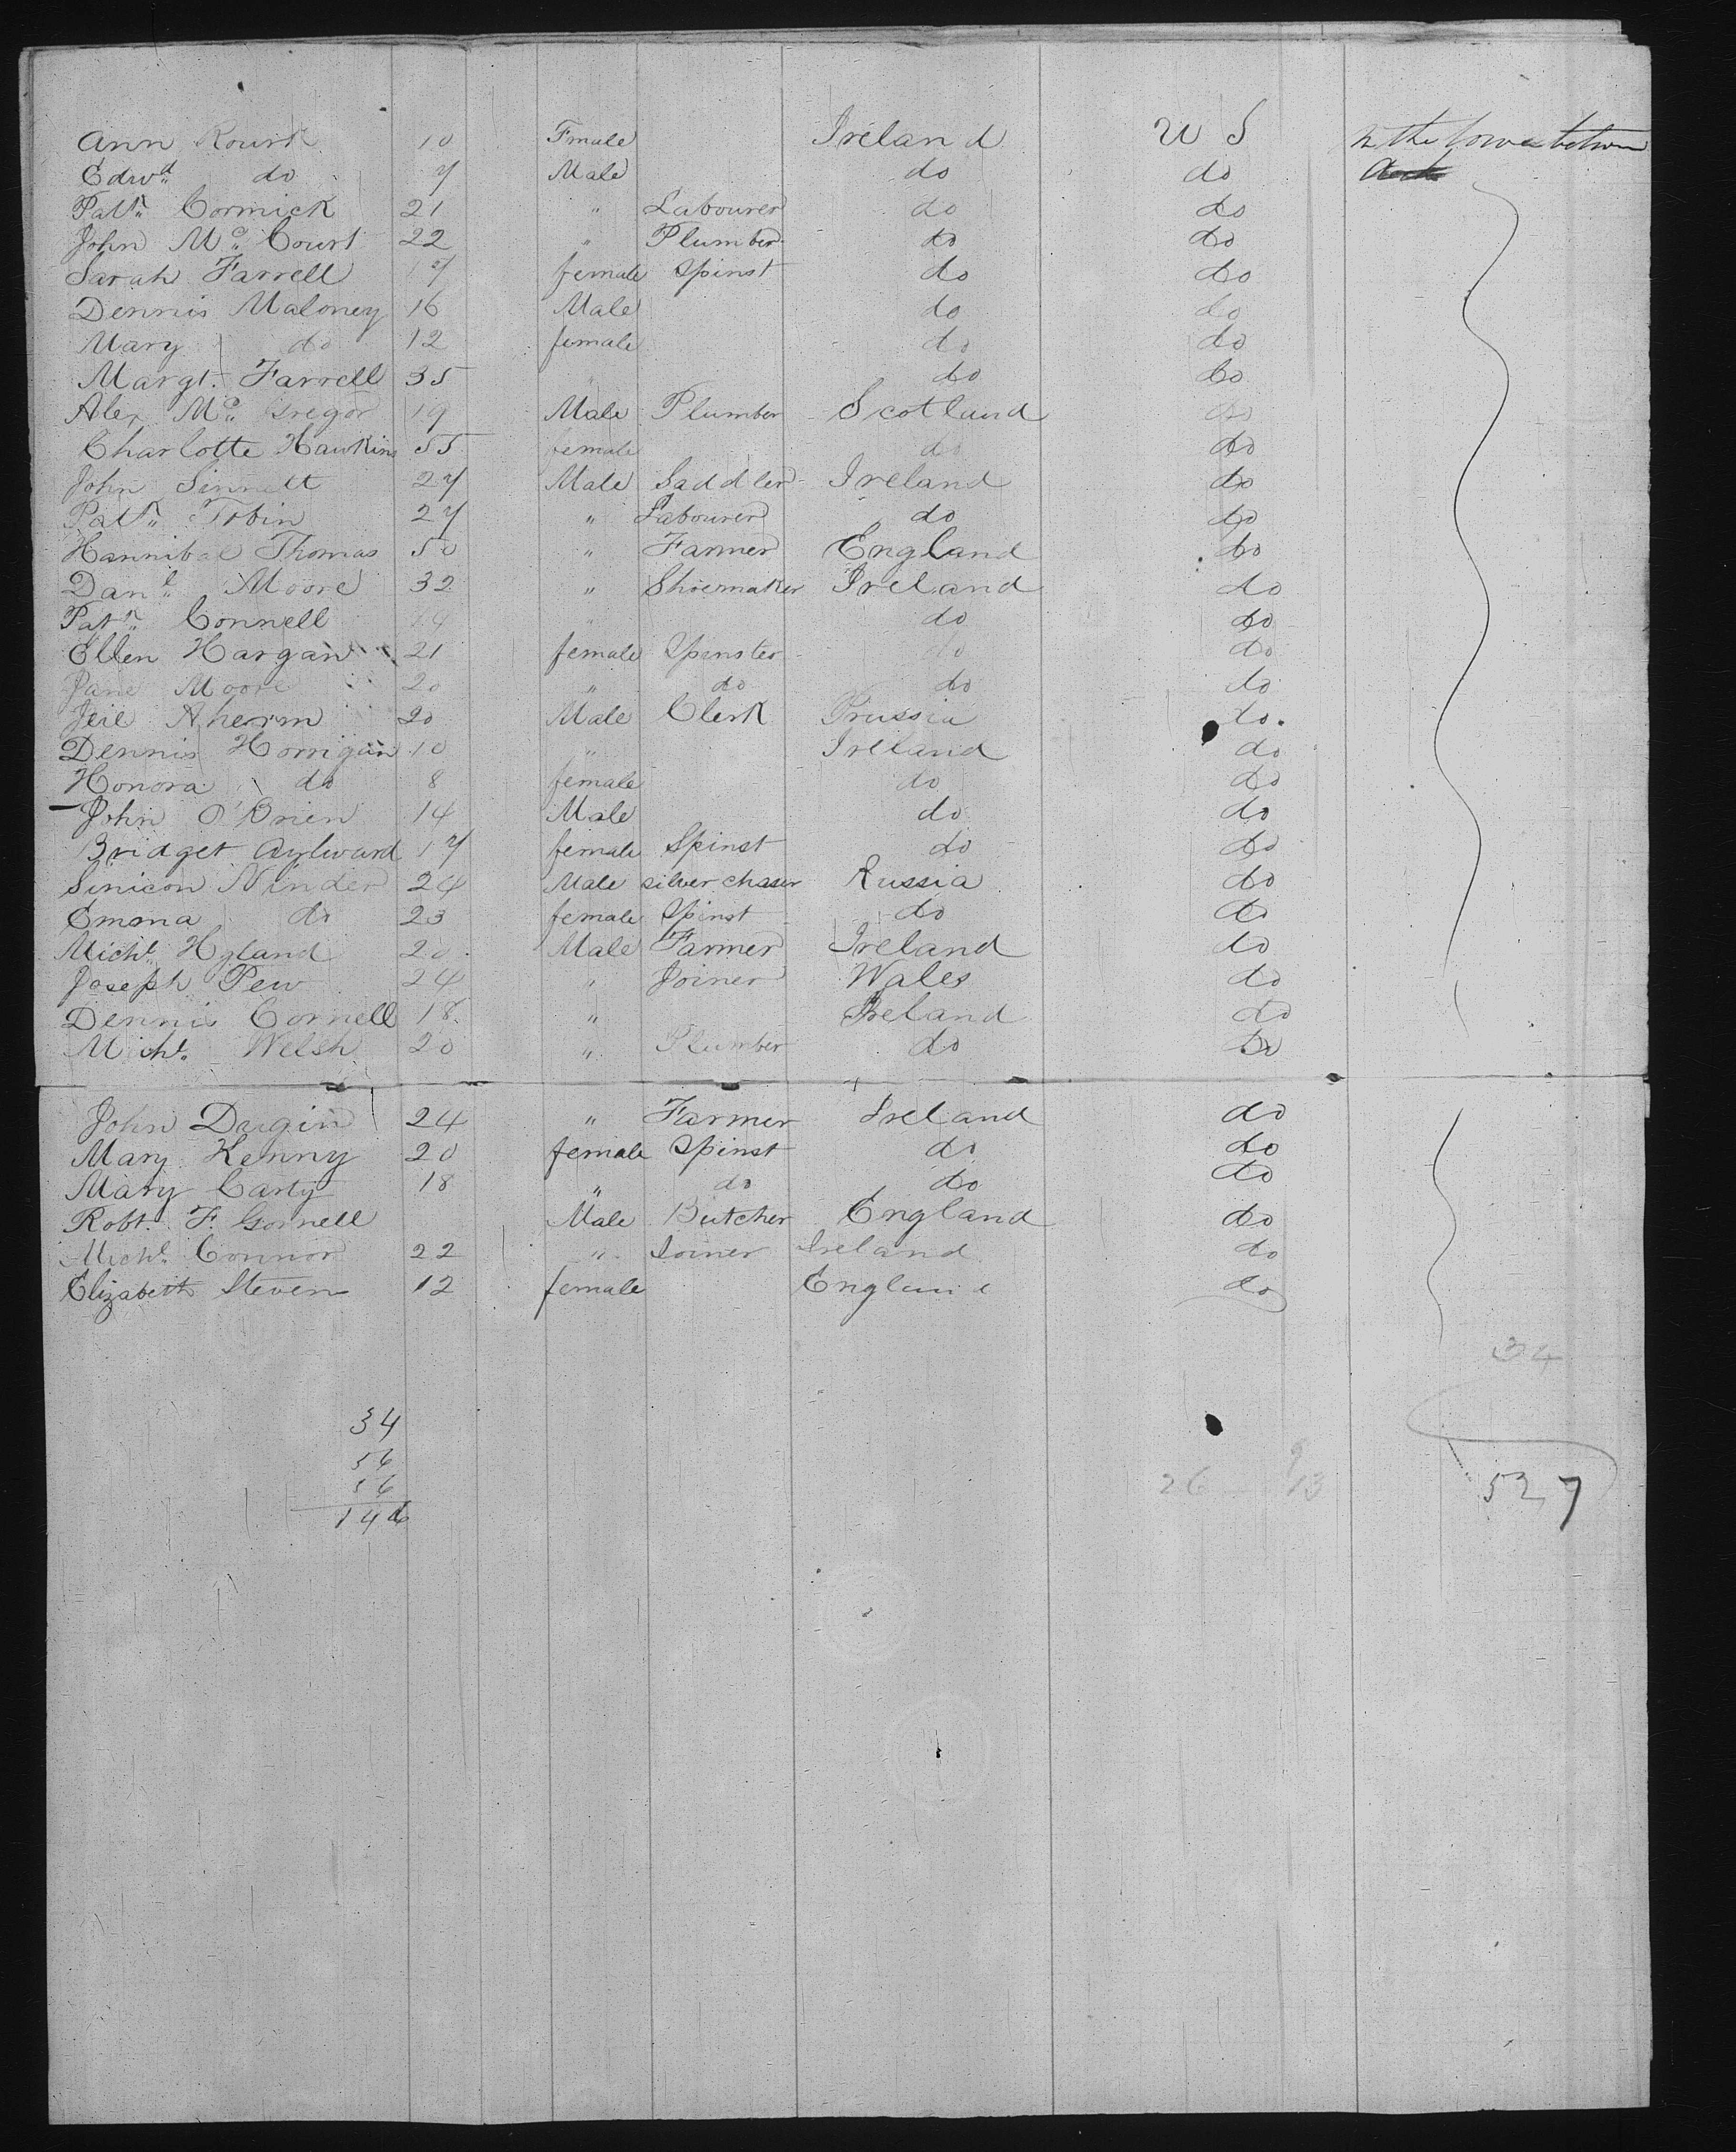 Ann Rourk 10 Fmale Ireland U S In the lower between
Edwd do 7 Male do do decks
Patk Cormick 21 " Labourer do do
John Mc Court 22 " Plumber do do
Sarah Farrell 17 female Spinst do do
Dennis Maloney 16 Male do do
Mary do 12 female do do
Margt. Farrell 35 " do do
Alex Mc Gregor 19 Male Plumber Scotland do
Charlotte Hawkins 55 female do do
John Sinnett 27 Male Saddler Ireland do
Patk Tobin 27 " Labourer do do
Hannibal Thomas 50 " Farmer England do
Danl Moore 32 " Shoemaker Ireland do
Patk Connell 14 " do do
Ellen Hargan 21 female Spinster do do
Jane Moore 20 " do do do
Aherim 20 Male Clerk Prussia do.
Dennis Horrigan 10 " Ireland do
Honora do 8 female do do
John O'Brien 14 Male do do
Bridget Aylward 17 female Spinst do do
Sinicon Ninder 24 Male silver chaser Russia do
Emma do 23 female Spinst do do
Michl. Hyland 20 Male Farmer Ireland do
Joseph Pew 24 " Joiner Wales do
Dennis Connell 18 " Ireland do
Michl. Welsh 20 " Plumber do do
John Dugin 24 " Farmer Ireland do
Mary Kenny 20 female Spinst do do
Mary Carty 18 " do do do
Robt. F. Gornell Male Butcher England do
Michl. Connor 22 " Joiner Ireland do
Elizabeth Steven 12 female England do
34
34
56
56
146
26 13
527